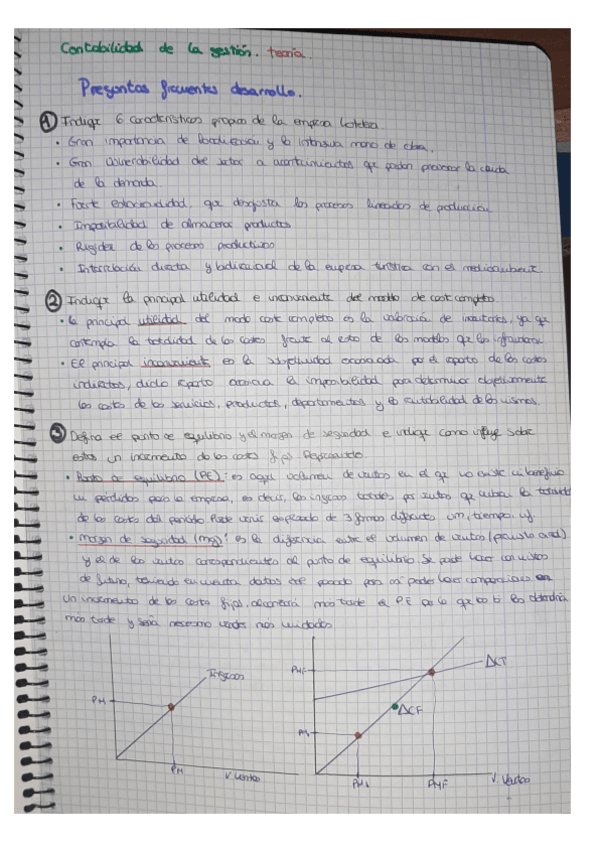 Contabilidad de la gestión. teoría.
Preguntas frecuentes desarrollo.
① Indique 6 características propias de la empresa hotelera
• Gran importancia de y la intensiva mano de obra.
• Gran vulnerabilidad del sector a acontecimientos que pueden provocar la caída
de la demanda.
• Fuerte estacionalidad, que los procesos de producción
• Imposibilidad de almacenar productos
• Rigidez de los procesos productivos
• Interrelación directa y bidireccional de la empresa turística con el medioambient.
② Indique la principal utilidad e inconveniente del modelo de cost completo.
• la principal utilidad del modo coste completo es la valoración de inventarios, ya que
contempla la totalidad de los costes frente al resto de los modelos que los
• El principal inconveniente es la subjetividad ocasionada por el reparto de los costes
indirectos, dicho reparto ocasiona la imposibilidad para determinar objetivamente
los costes de los servicios, productos, departamentos y la rentabilidad de los mismos.
③ Defina el punto de equilibrio y el margen de seguridad e indique como influye sobre
estos un incremento de los costes fijos.
• Punto de equilibrio (PE): es aquel volumen de ventas en el que no existe ni beneficio
ni pérdidas para la empresa, es decir, los ingresos totales por ventas que cubren la totalidad
de los costes del periodo. Puede venir expresado de 3 formas diferentes um, tiempo, uf
• margen de seguridad (mg): es la diferencia entre el volumen de ventas
y el de las ventas correspondientes al punto de equilibrio. Se puede hacer con
de futuro, teniendo en cuenta datos del pasado para así poder hacer comparaciones
un incremento de los costes fijos, mas tarde el PE por lo que los
mas tarde y sería necesario vender más unidades
PM
Ingresos
PM
V. Ventas
PMF
ΔCT
ΔCF
PMF
V. Ventas